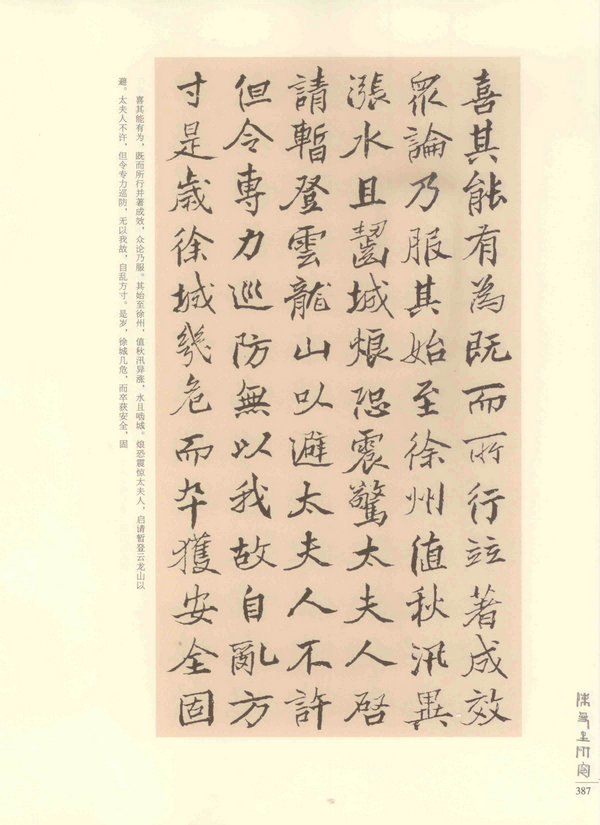 喜其能有為既而所行竝著成效
眾論乃服其始至徐州值秋汛異
漲水且齧城烺恐震驚太夫人啓
請暫登雲龍山以避太夫人不許
但令專力巡防無以我故自亂方
寸是歲徐城幾危而卒獲安全固
喜其能有为，既而所行并著成效，众论乃服。其始至徐州，值秋汛异涨，水且啮城。烺恐震惊太夫人，启请暂登云龙山以
避。太夫人不许，但令专力巡防，无以我故，自乱方寸。是岁，徐城几危，而卒获安全，固
387